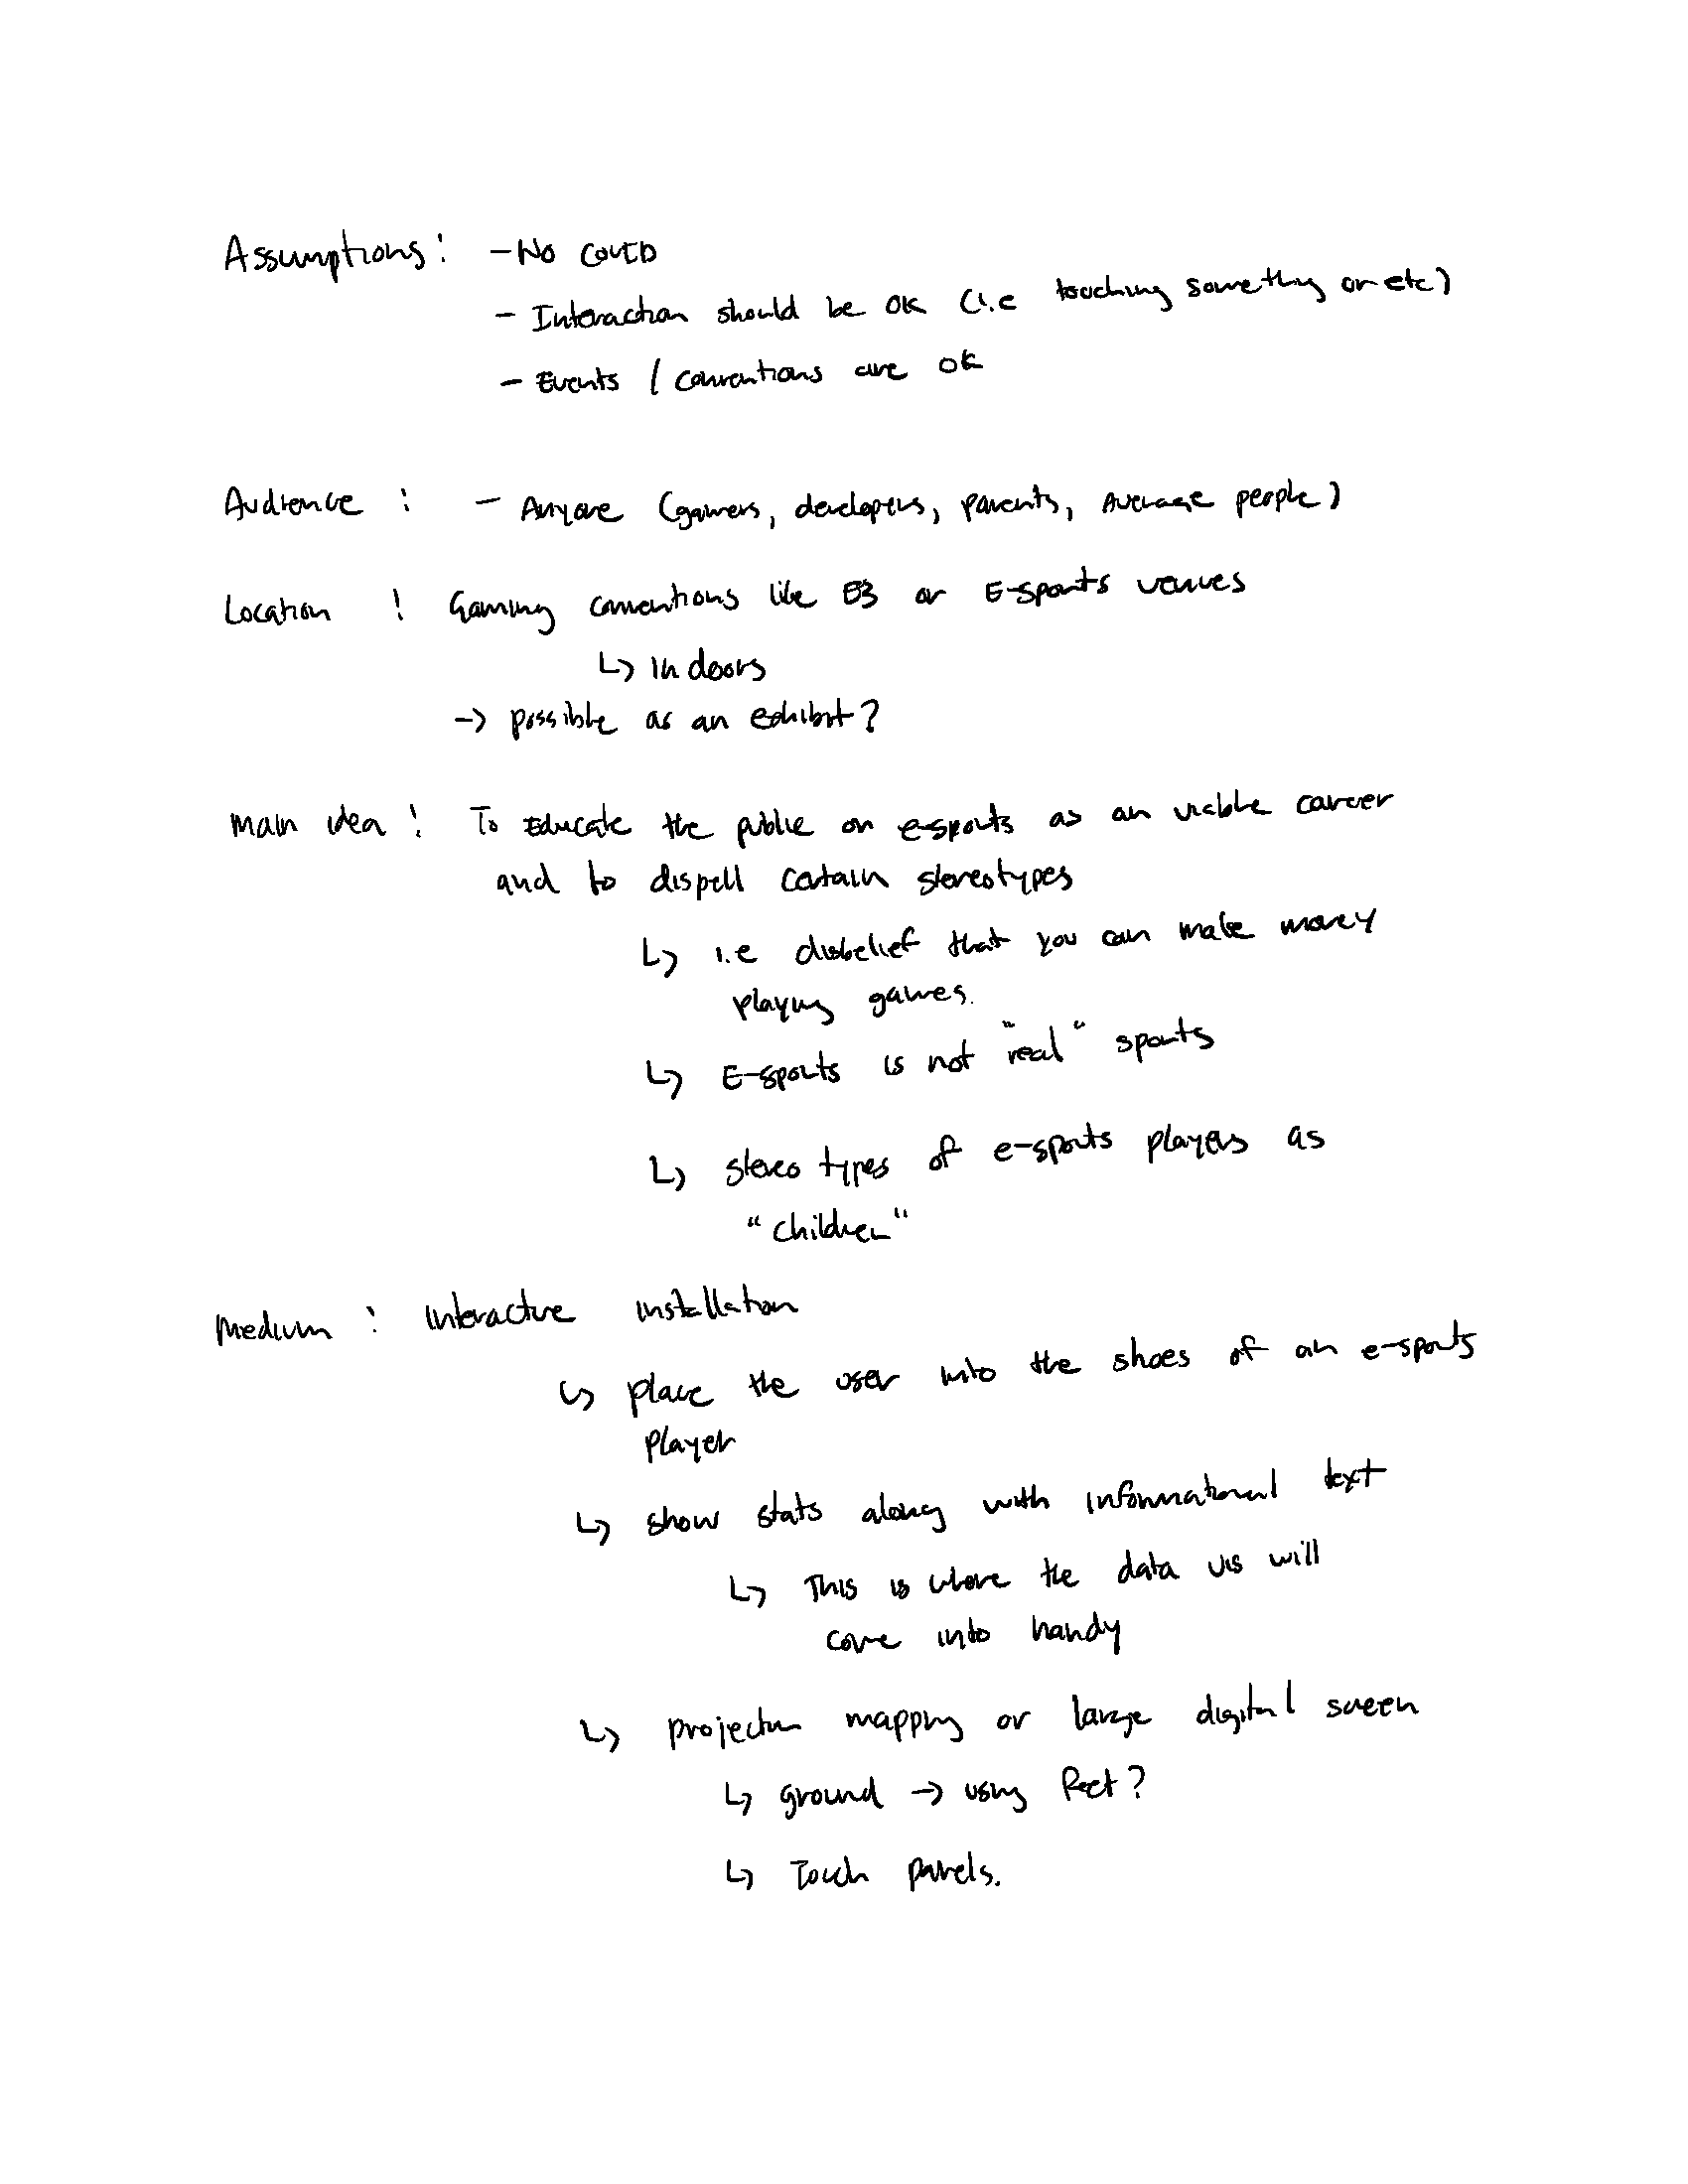 Assumptions: - No COVID
- Interaction should be OK (i.e touching something or etc)
- Events / conventions are ok
Audience : - Anyone (gamers, developers, parents, average people)
Location : Gaming conventions like E3 or E-sports venues
↳ indoors
→ possible as an exhibit?
Main idea : To Educate the public on e-sports as an viable career
and to dispell certain stereotypes
↳ i.e disbelief that you can make money
playing games.
↳ E-sports is not "real" sports
↳ stereotypes of e-sports players as
"children"
Medium : Interactive installation
↳ place the user into the shoes of an e-sports
player
↳ show stats along with informational text
↳ This is where the data vis will
come into handy
↳ projection mapping or large digital screen
↳ ground → using feet?
↳ Touch panels.